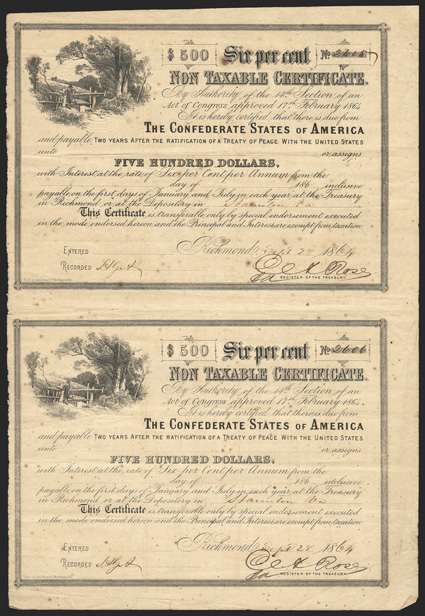 $ 500 Six per cent No 2605
NON TAXABLE CERTIFICATE.
By Authority of the 14th Section of an
Act of Congress approved 17th February 1864
It is hereby certified that there is due from
THE CONFEDERATE STATES OF AMERICA
and payable TWO YEARS AFTER THE RATIFICATION OF A TREATY OF PEACE WITH THE UNITED STATES
unto or assigns
FIVE HUNDRED DOLLARS,
with Interest at the rate of Six per Cent per Annum from the
day of 186 inclusive
payable on the first days of January and July in each year at the Treasury
in Richmond, or at the Depository in Staunton Va
This Certificate is transferable only by special endorsement executed
in the mode endorsed hereon and the Principal and Interest are exempt from taxation
Richmond, Sept 28 1864
ENTERED
RECORDED
Ed A. Rose
REGISTER OF THE TREASURY
$ 500 Six per cent No 2606
NON TAXABLE CERTIFICATE.
By Authority of the 14th Section of an
Act of Congress approved 17th February 1864
It is hereby certified that there is due from
THE CONFEDERATE STATES OF AMERICA
and payable TWO YEARS AFTER THE RATIFICATION OF A TREATY OF PEACE WITH THE UNITED STATES
unto or assigns
FIVE HUNDRED DOLLARS,
with Interest at the rate of Six per Cent per Annum from the
day of 186 inclusive
payable on the first days of January and July in each year at the Treasury
in Richmond, or at the Depository in Staunton Va
This Certificate is transferable only by special endorsement executed
in the mode endorsed hereon and the Principal and Interest are exempt from taxation
Richmond, Sept 28 1864
ENTERED
RECORDED
Ed A. Rose
REGISTER OF THE TREASURY